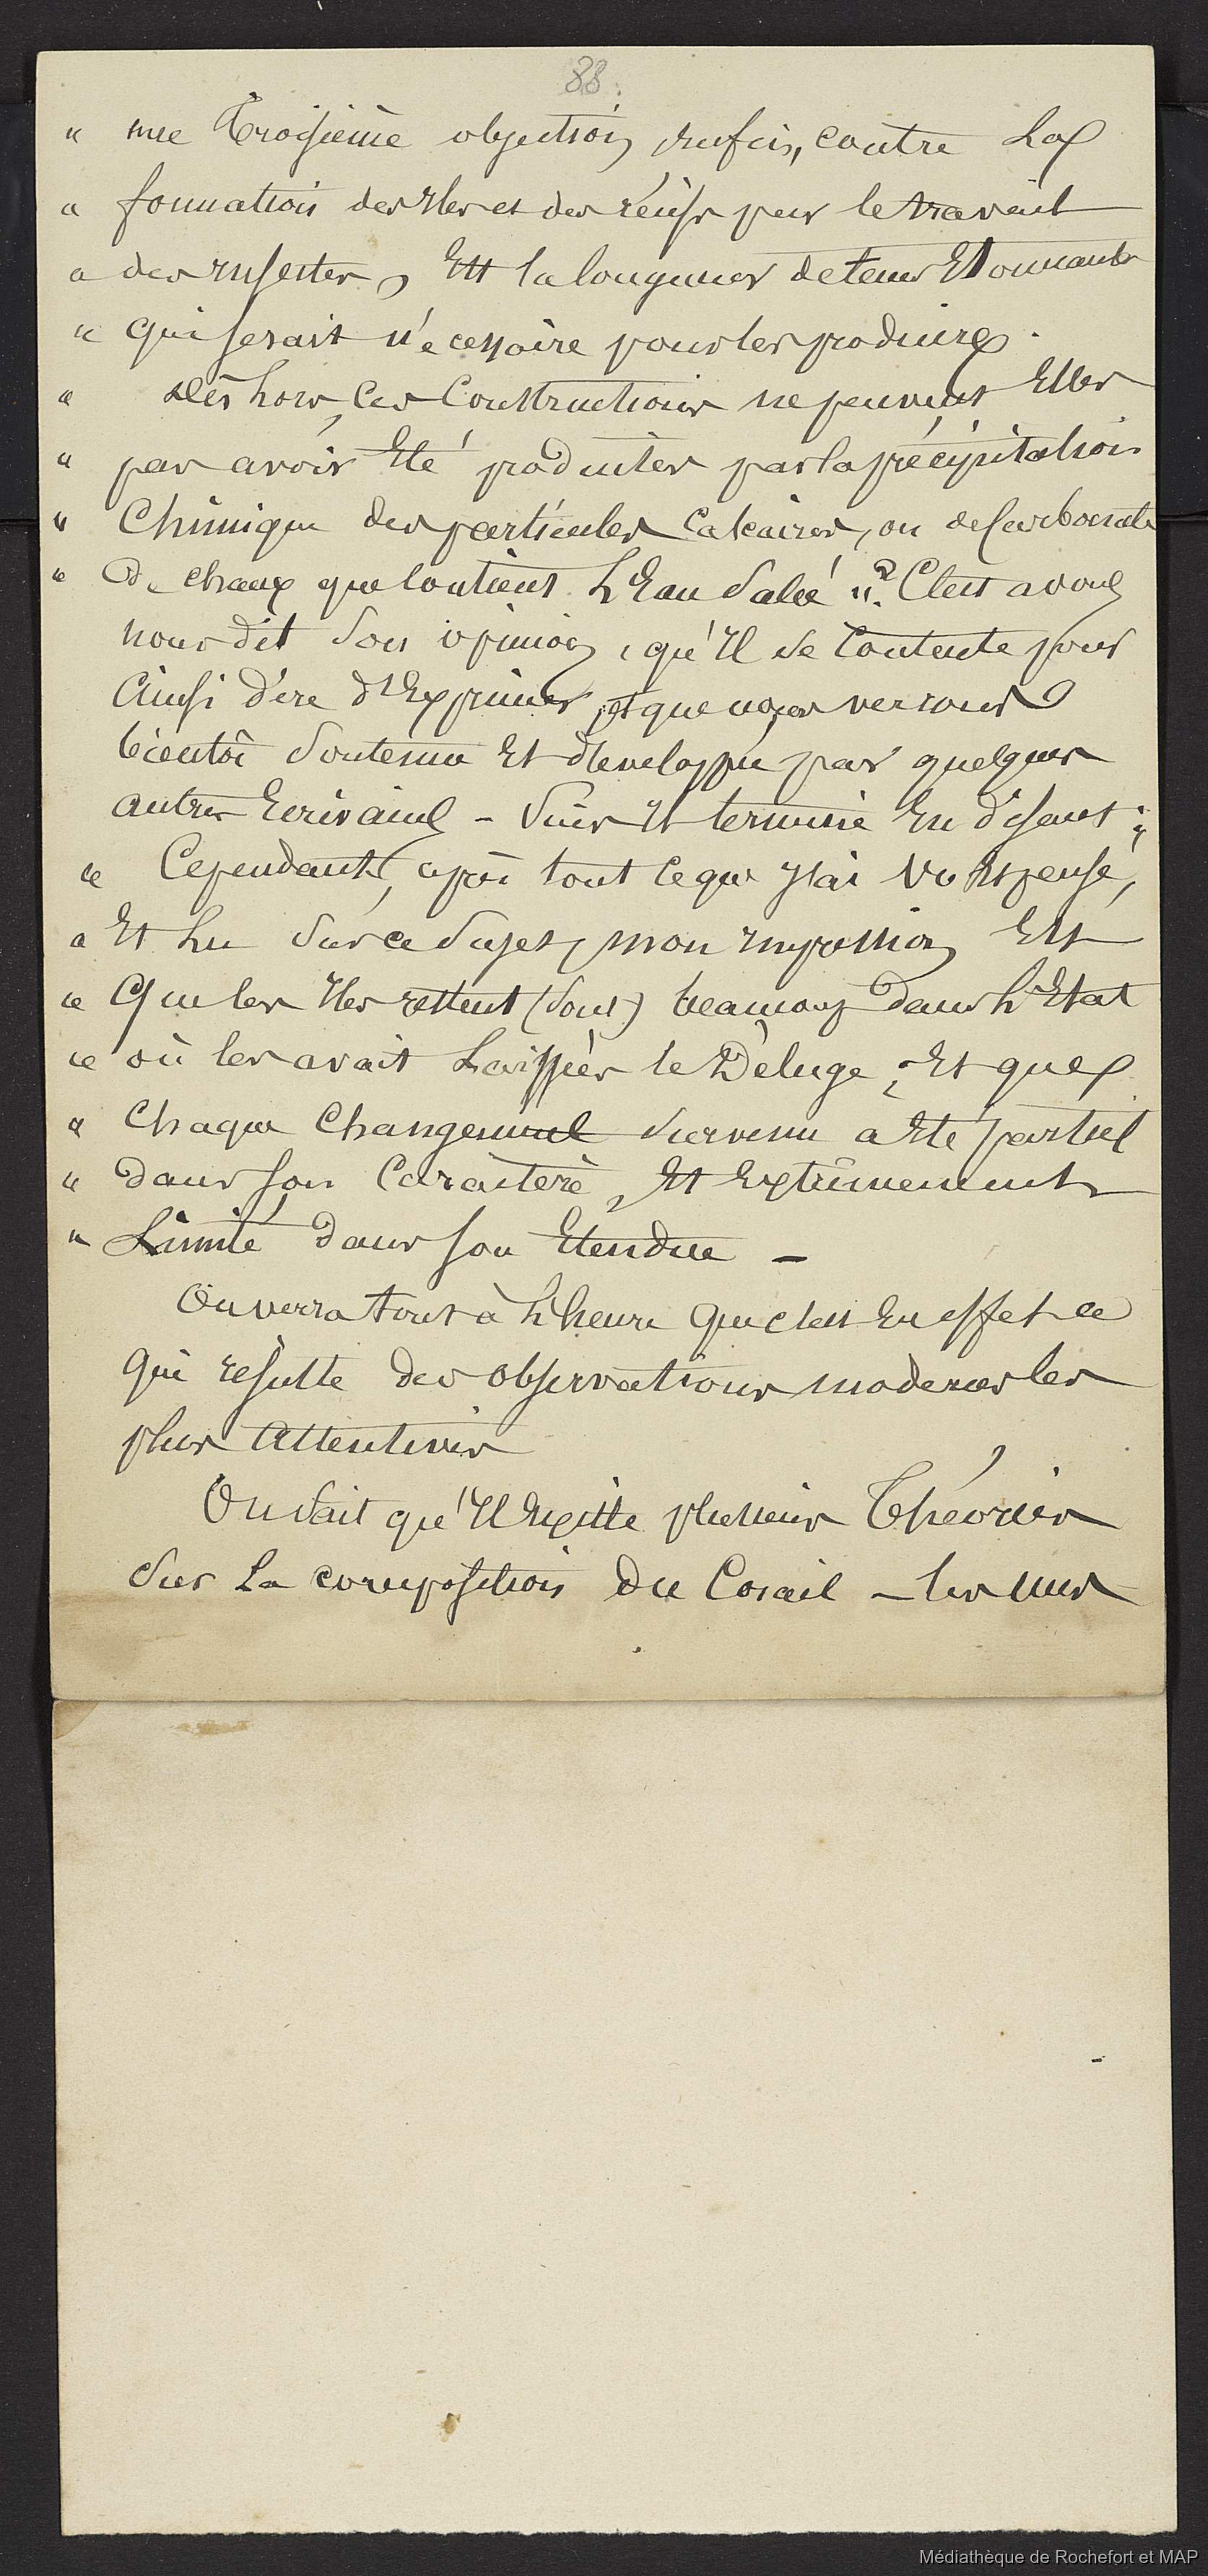 88.
" une troisième objection, enfin, contre La
" formation des Iles et des récifs par le travail
" des Insectes, Est la longueur de tems Etonnante
" qui serait nécessaire pour les produire.
" Dès Lors, Ces Constructions ne peuvent Elles
" pas avoir Eté produites par la précipitation
" Chimique des particules Calcaires, ou de Carbonate
" De chaux que Contient L'Eau Salée "? C'est
nous dit Son opinion, qu'Il se Contente pour
Ainsi dire d'Exprimer, Et que nous verrons
bientôt Soutenue Et développée par quelques
autres Ecrivains - Puis Il termine En disant : "
" Cependant, après tout ce que J'ai Vu Et pensé,
" Et Lu Sur ce Sujet, mon Impression Est
" Que les Iles restent (Sont) beaucoup dans L'Etat
" où les avait Laissées le Déluge, Et que
" Chaque Changement Survenu a Eté partiel
" Dans Son Caractère, Et Extrêmement
" Limité Dans Son Etendue -
On verra tout à L'heure Que c'est En effet ce
Qui résulte des Observations modernes les
plus Attentives
On Sait qu'Il Existe plusieurs Théories
Sur La composition Du Corail - les unes
Médiathèque de Rochefort et MAP